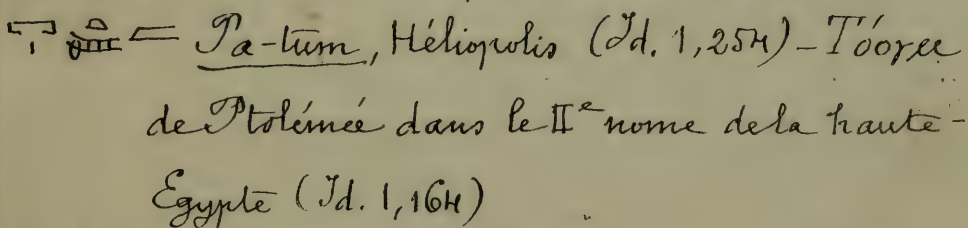 = Pa-tum, Héliopolis (Id. 1,254) -
de Ptolémée dans le IIe nome de la haute-
Egypte (Id. 1,164)